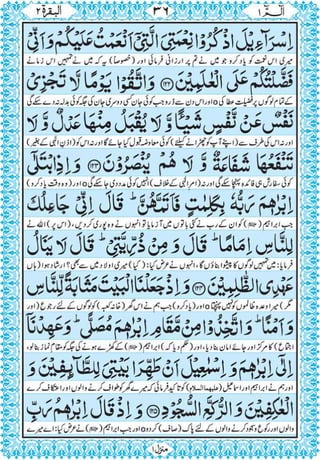 الٓمّٓ ١ ٣٦ البقرة ٢
اِسْرَآءِيْلَ اذْكُرُوْا نِعْمَتِيَ الَّتِيْٓ اَنْعَمْتُ عَلَيْكُمْ وَ اَنِّيْ
میری اس نعمت کو یاد کرو جو میں نے تم پر ارزانی فرمائی اور (خصوصاً) یہ کہ میں نے تمہیں اس زمانے
فَضَّلْتُكُمْ عَلَى الْعٰلَمِيْنَ ﴿۱۲۲﴾ وَ اتَّقُوْا يَوْمًا لَّا تَجْزِيْ
کے تمام لوگوں پر فضیلت عطا کی o اور اس دن سے ڈرو جب کوئی جان کسی دوسری جان کی جگہ کوئی بدلہ نہ دے سکے گی
نَفْسٌ عَنْ نَّفْسٍ شَيْئًا وَّ لَا يُقْبَلُ مِنْهَا عَدْلٌ وَّ لَا
اور نہ اس کی طرف سے (اپنے آپ کو چھڑانے کیلئے) کوئی معاوضہ قبول کیا جائے گا اور نہ اس کو (اذنِ الٰہی کے بغیر)
تَنْفَعُهَا شَفَاعَةٌ وَّ لَا هُمْ يُنْصَرُوْنَ ﴿۱۲۳﴾ وَ اِذِ ابْتَلٰٓى
کوئی سفارش ہی فائدہ پہنچا سکے گی اور نہ (امرِ الٰہی کے خلاف) انہیں کوئی مدد دی جا سکے گی o اور (وہ وقت یاد کرو)
اِبْرٰهٖمَ رَبُّهٗ بِكَلِمٰتٍ فَاَتَمَّهُنَّ ؕ قَالَ اِنِّيْ جَاعِلُكَ
جب ابراہیم (ﷺ) کو ان کے رب نے کئی باتوں میں آزمایا تو انہوں نے وہ پوری کر دیں، (اس پر) اللہ نے
لِلنَّاسِ اِمَامًا ؕ قَالَ وَ مِنْ ذُرِّيَّتِيْ ؕ قَالَ لَا يَنَالُ
فرمایا: میں تمہیں لوگوں کا پیشوا بناؤں گا، انہوں نے عرض کیا: (کیا) میری اولاد میں سے بھی؟ ارشاد ہوا (ہاں
عَهْدِي الظّٰلِمِيْنَ ﴿۱۲۴﴾ وَ اِذْ جَعَلْنَا الْبَيْتَ مَثَابَةً لِّلنَّاسِ
مگر) میرا وعدہ ظالموں کو نہیں پہنچتا o اور (یاد کرو) جب ہم نے اس گھر (خانہ کعبہ) کو لوگوں کے لئے رجوع (اور
وَ اَمْنًا ؕ وَ اتَّخِذُوْا مِنْ مَّقَامِ اِبْرٰهٖمَ مُصَلًّى ؕ وَ عَهِدْنَآ
اجتماع) کا مرکز اور جائے امان بنا دیا، اور (حکم دیا کہ) ابراہیم (ﷺ) کے کھڑے ہونے کی جگہ کو مقامِ نماز بنا لو،
اِلٰٓى اِبْرٰهٖمَ وَ اِسْمٰعِيْلَ اَنْ طَهِّرَا بَيْتِيَ لِلطَّآئِفِيْنَ وَ
اور ہم نے ابراہیم اور اسماعیل (علیہما السلام) کو تاکید فرمائی کہ میرے گھر کو طواف کرنے والوں اور اعتکاف کرنے
الْعٰكِفِيْنَ وَ الرُّكَّعِ السُّجُوْدِ ﴿۱۲۵﴾ وَ اِذْ قَالَ اِبْرٰهٖمُ رَبِّ
والوں اور رکوع و سجود کرنے والوں کے لئے پاک (صاف) کر دو o اور جب ابراہیم (ﷺ) نے عرض کیا: اے میرے
منزل ١